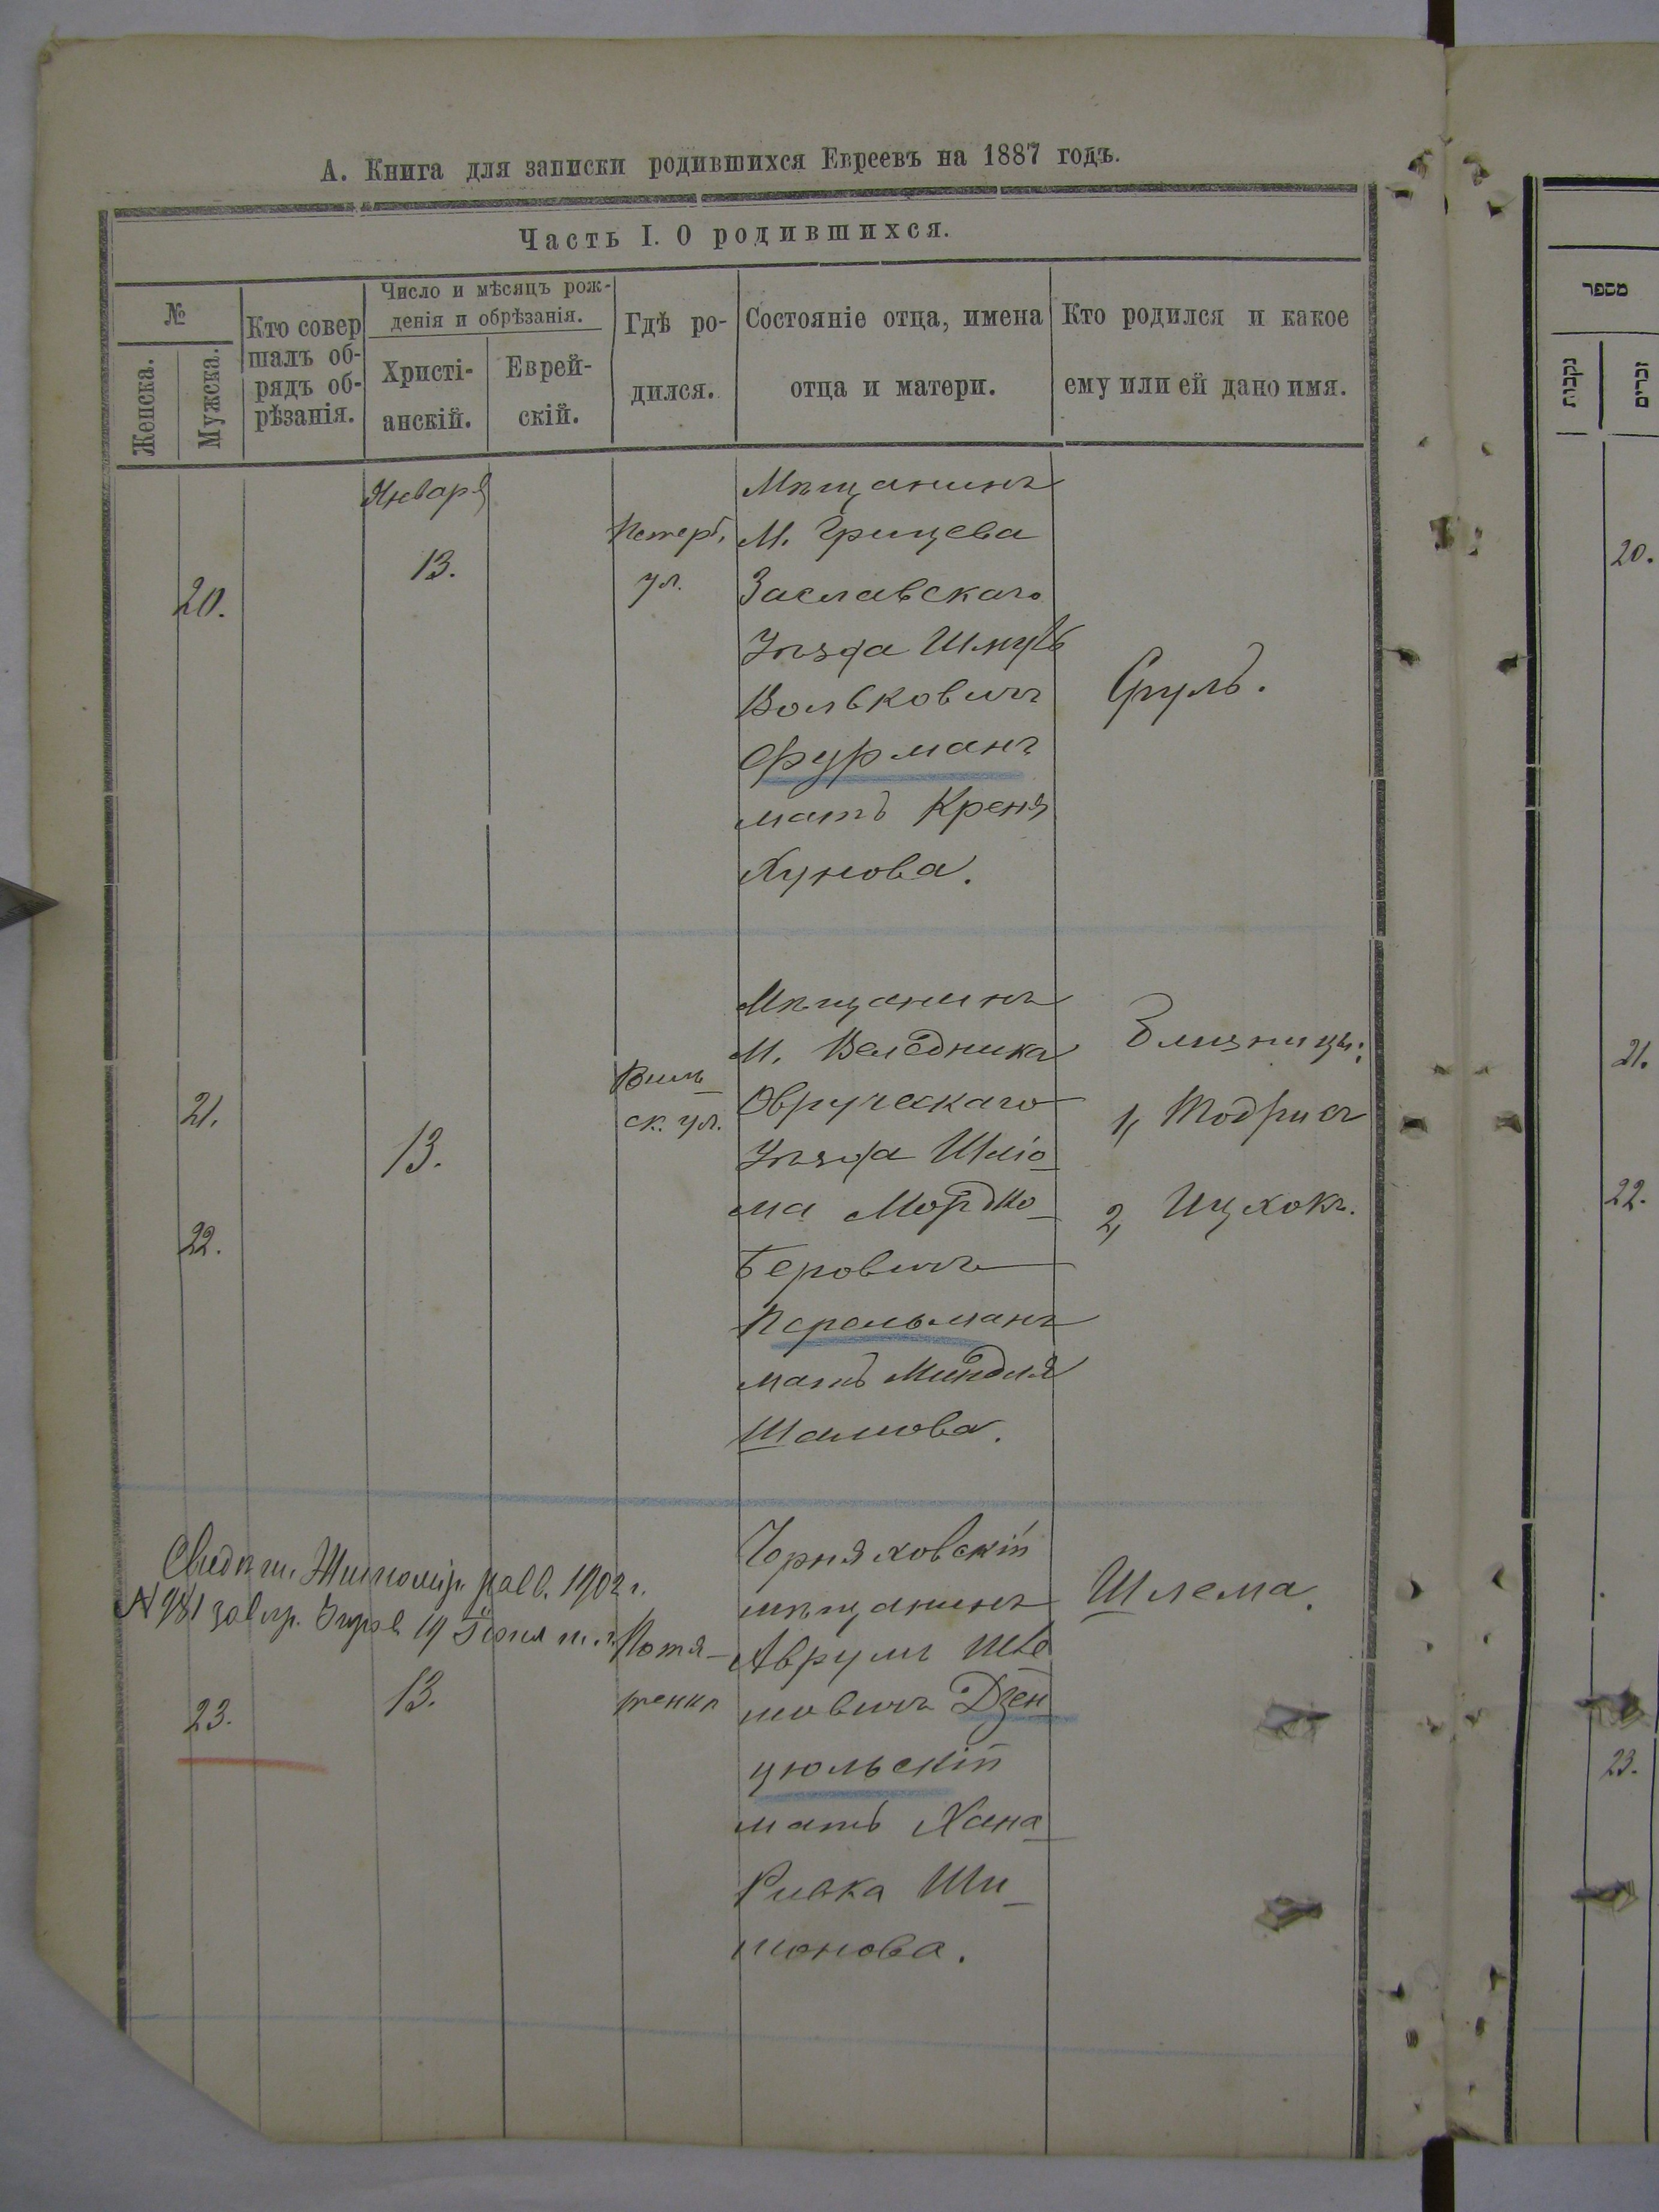 А. Книга для записки родившихся Евреевъ на 1887 годъ.
Часть I. О родившихся.
№
Женска.
Мужска.
Кто совер
шалъ об-
рядъ об-
рѣзанія.
Число и мѣсяцъ рож-
денія и обрѣзанія.
Христі-
анскій.
Еврей-
скій.
Гдѣ ро-
дился.
Состояніе отца, имена
отца и матери.
Кто родился и какое
ему или ей дано имя.
20.
Января
13.
Петерб.
ул.
Мѣщанинъ
М. Грицева
Заславскаго
Уѣзда Шмуль
Вольковичъ
Фурманъ
мать Креня
Хунова.
Сруль.
21.
22.
13.
Вильск. ул.
Мѣщанинъ
М. Веледника
Овручскаго
Уѣзда Шліо-
ма Мордко-
Беровичъ
Перельманъ
мать Миндля
Шаимова.
Близницы:
1, Тодрисъ
2, Ицхокъ.
Свидѣт. Житомір. равв. 1902 г.
N 981
19 Іюня т. г.
23.
13.
Чорняховскій
мѣщанинъ
Аврумъ Шле
мовичъ Дзен
цюльскій
мать Хана
Ривка Ши-
монова.
Шлема.
מספר
נקבות
זכרים
20.
21.
22.
23.